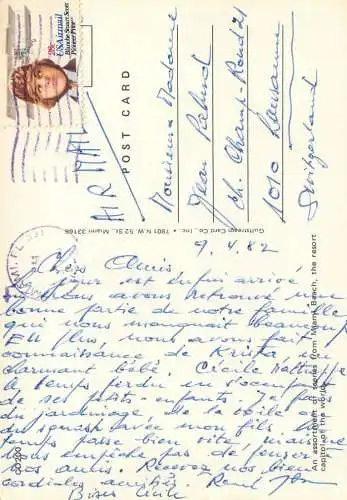 USAirmail
28c
Blanche Stuart Scott
Pioneer Pilot
AIR MAIL
POST CARD
Monsieur Madame
Jean
Ch. Champ-Rond 21
1010 Lausanne
Switzerland
Gulfstream Card Co. Inc. • 7801 N.W. 52 St. Miami 33166
MIAMI, FL 331
9.4.82
Chers Amis,
jour est enfin arrivé
nous avons retrouvé une
bonne partie de notre famille
qui nous manquait beaucoup
En plus nous avons fait
connaissance de Krista un
charmant bébé. Cécile
le temps jardin en s'occupant
de ses petits-enfants. J'ai fait
du jardinage de la voile et
du squash avec mon fils. Le
temps passe bien vite, mais
nous empêche pas de penser
nos amis. Recevez nos bien
cordiales amitiés. René
Bises Cécile
An assortment of scenes from Miami Beach, the resort
capitol of the world.